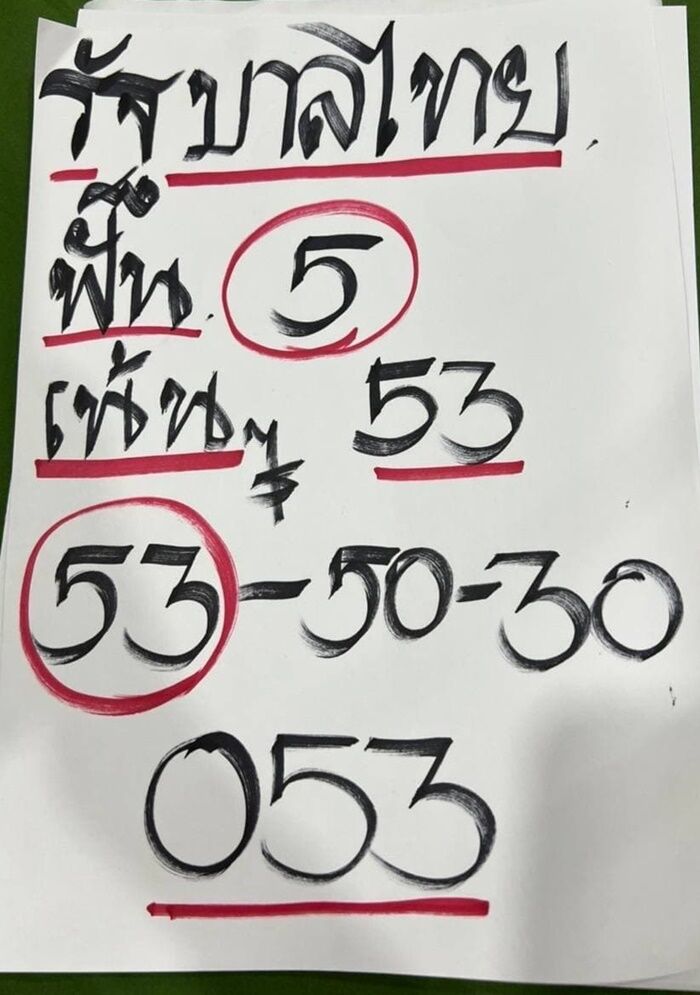 รัฐบาลไทย.
ฟัน. 5
เน้นๆ 53
53-50-30
053